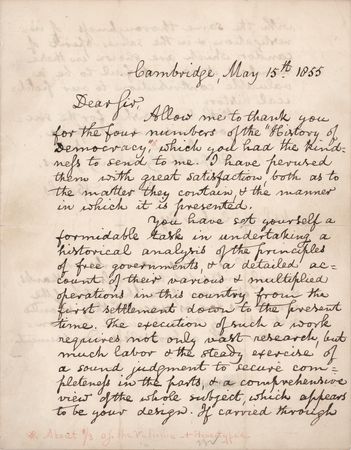 Cambridge, May 15th 1855
Dear Sir,
Allow me to thank you
for the four numbers of the "History of
Democracy," which you had the kind-
ness to send to me. I have perused
them with great satisfaction both as to
the matter they contain, & the manner
in which it is presented.
You have set yourself a
formidable task in undertaking a
historical analysis of the principles
of free governments, & a detailed ac-
count of their various & multiplied
operations in this country from the
first settlement down to the present
time. The execution of such a work
requires not only vast research, but
much labor & the steady exercise of
a sound judgment to secure com-
pleteness in the parts, & a comprehensive
view of the whole subject, which appears
to be your design. If carried through
About of the Volume